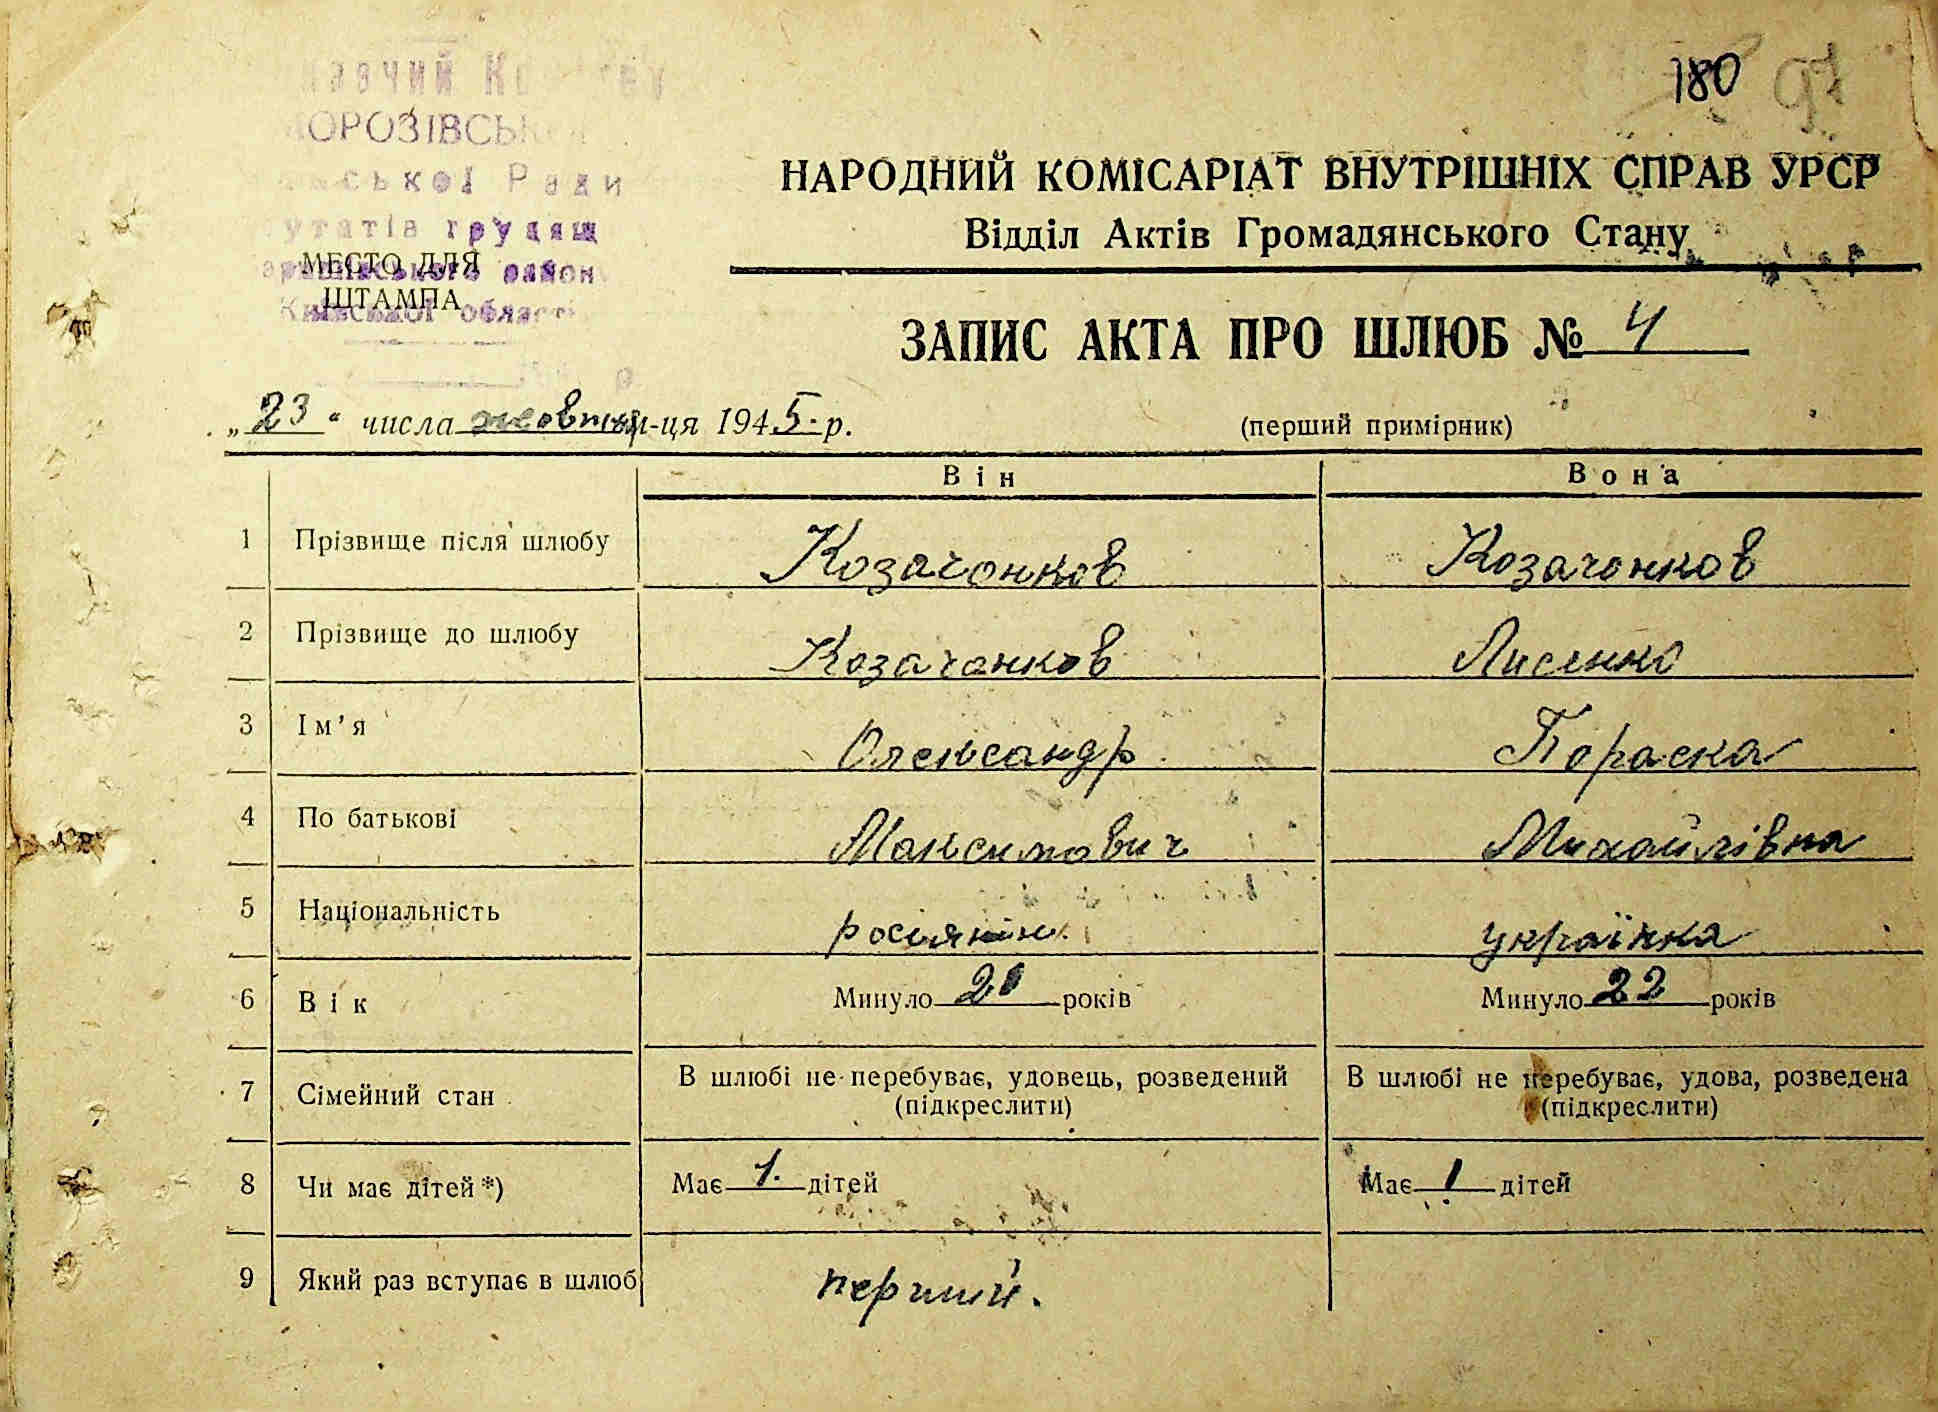 180 97
ОРОЗІВСЬ
Ради
МЕСТО ДЛЯ
ШТАМПА
Київської області
НАРОДНИЙ КОМІСАРІАТ ВНУТРІШНІХ СПРАВ УРСР
Відділ Актів Громадянського Стану
ЗАПИС АКТА ПРО ШЛЮБ № 4
„23“ числа жовтня м-ця 1945. р.
(перший примірник)
Він Вона
1 Прізвище після шлюбу Козачонков Козачонков
2 Прізвище до шлюбу Козачонков Лисенко
3 Ім'я Олександр Параска
4 По батькові Максимович Михайлівна
5 Національність росіянин. українка
6 Вік Минуло 20 років Минуло 22 років
7 Сімейний стан В шлюбі не перебуває, удовець, розведений В шлюбі не перебуває, удова, розведена
(підкреслити) (підкреслити)
8 Чи має дітей *) Має 1. дітей Має 1 дітей
9 Який раз вступає в шлюб перший.